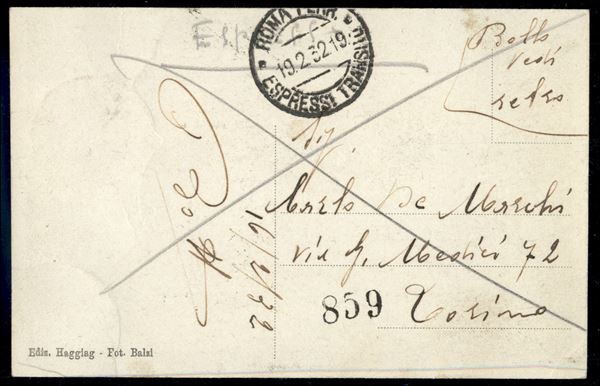 ROMA FERR. ESPRESSI TRANSITI
19.2.32.19
Bollo
vedi
retro
Sig.
De Marchi
via G. Medici 72
Torino
859
16/2/32
Ediz. Haggiag - Fot. Balzi